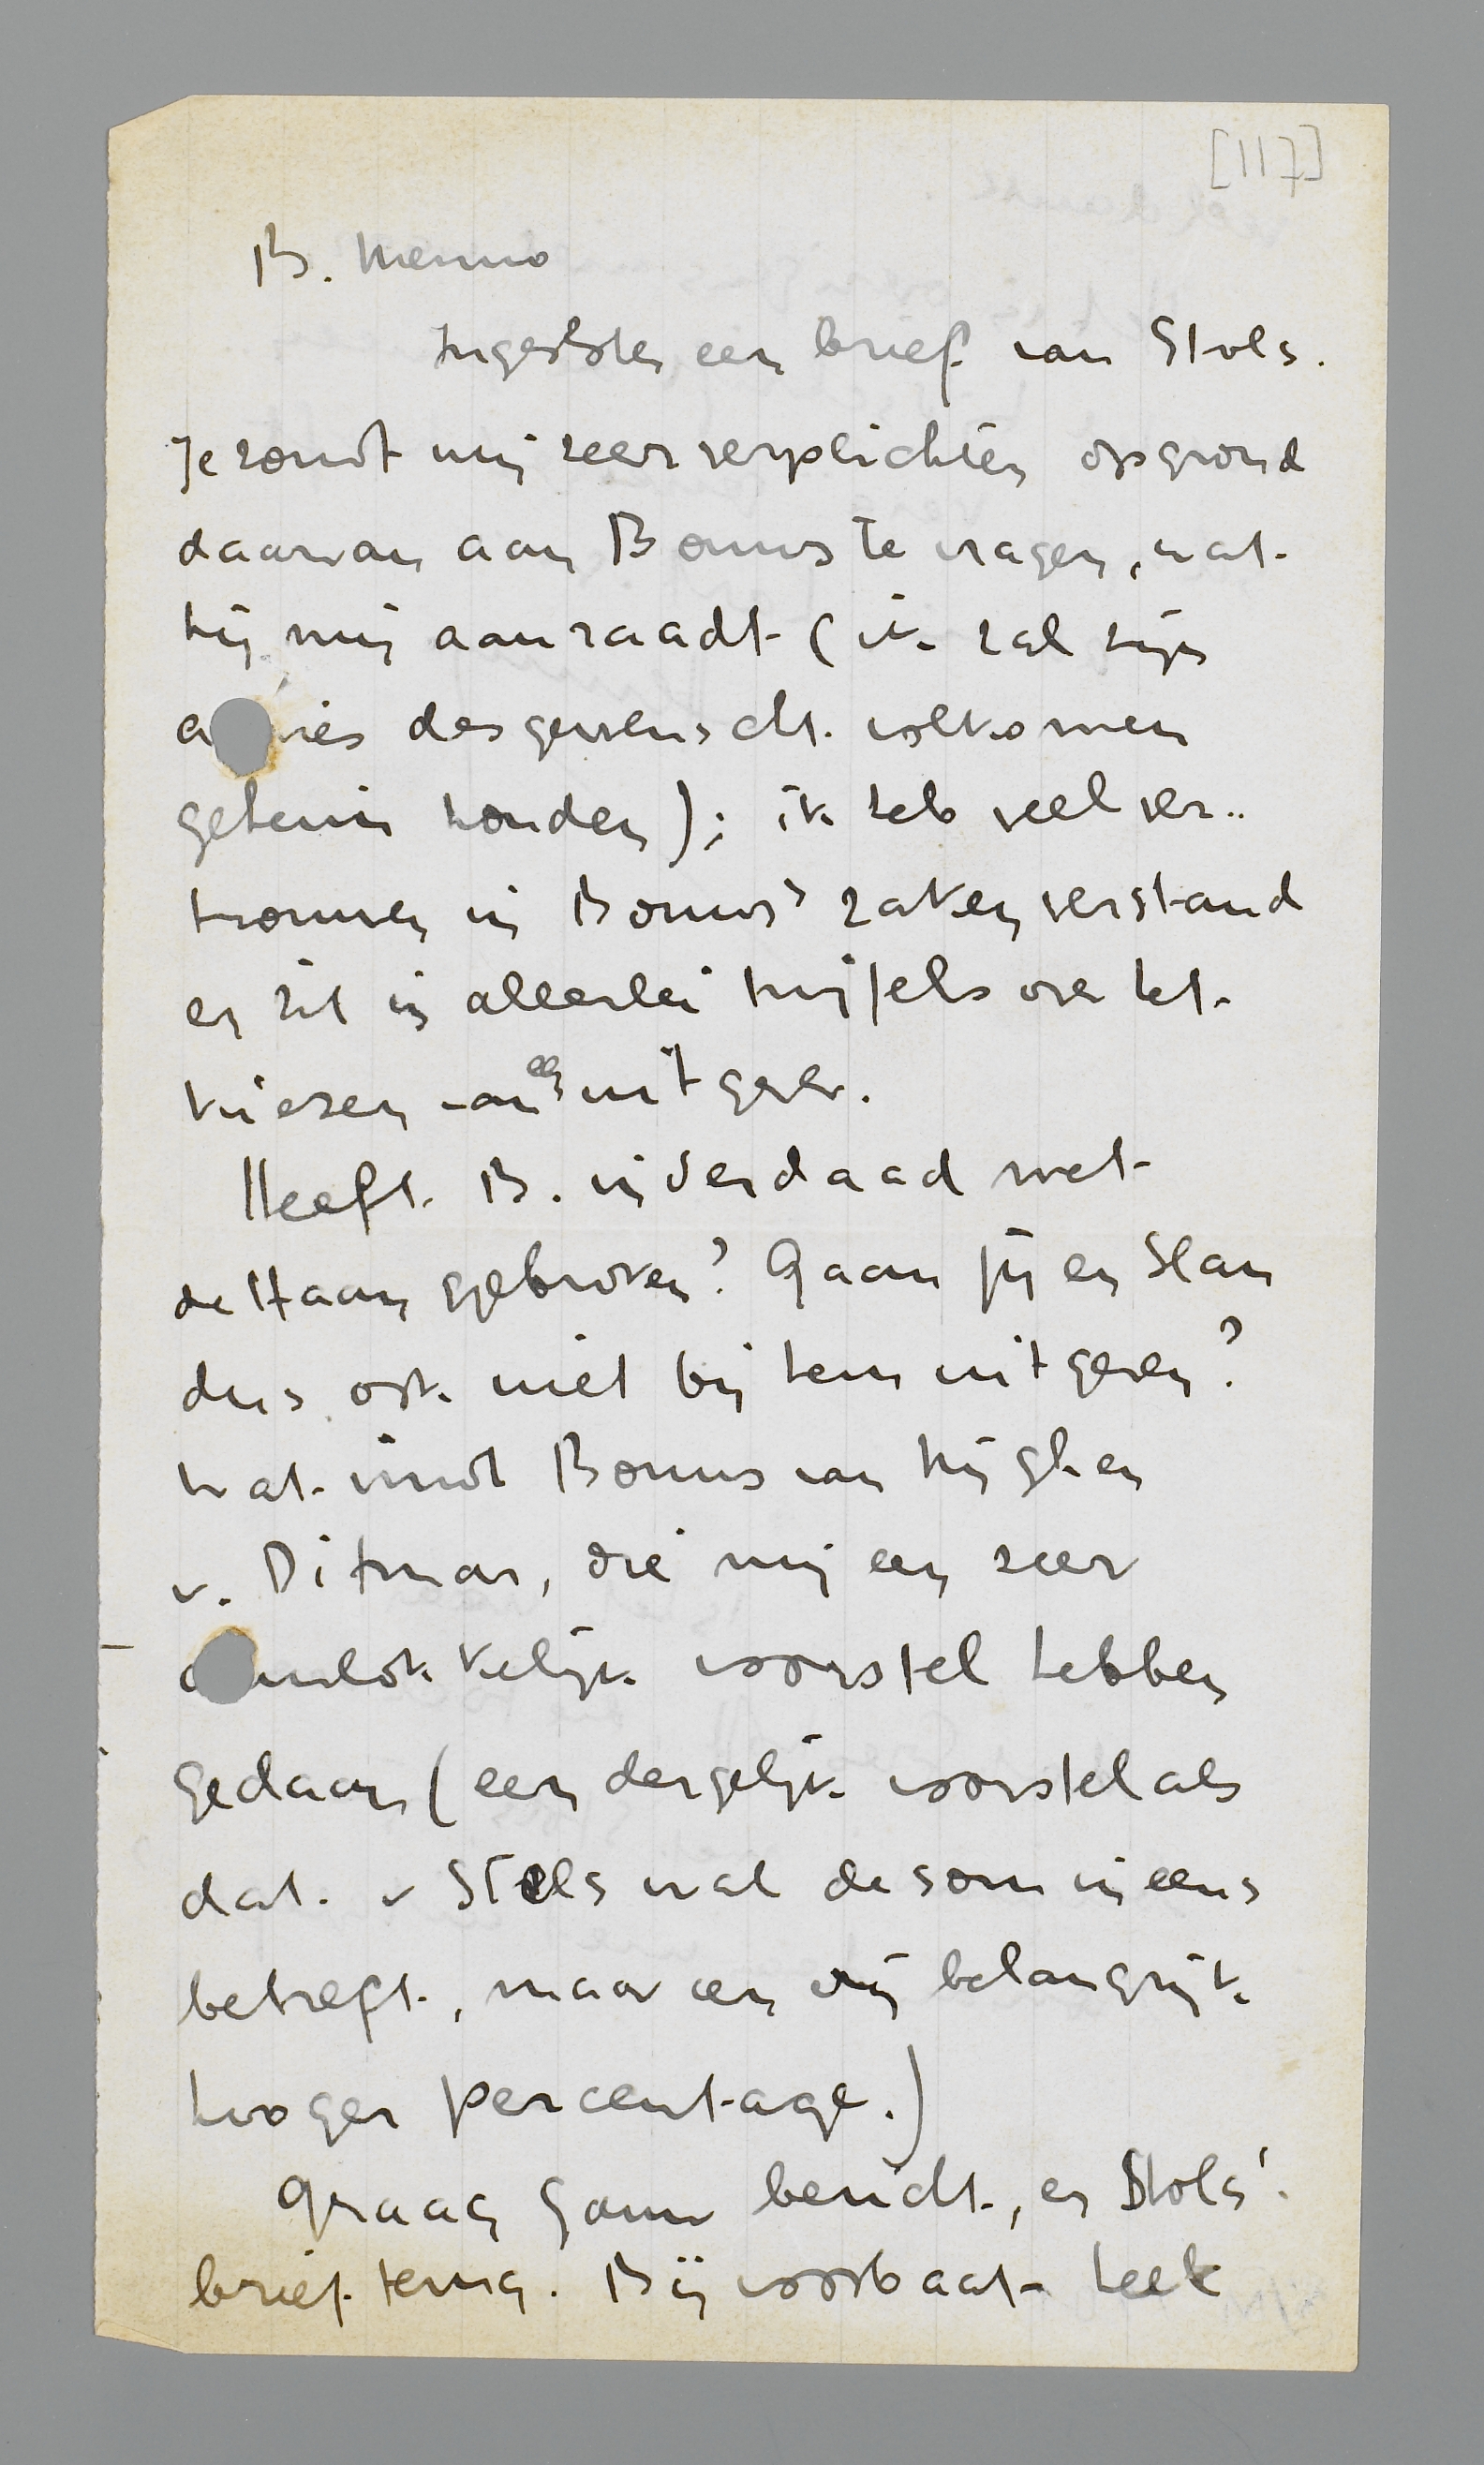 [117]
B. Menno
Ingesloten een brief van Stols.
Je zoudt mij zeer verplichten op grond
daarvan aan Bouws te vragen, wat
hij mij aanraadt (ik zal zijn
a vies desgewenscht volkomen
geheim houden); ik heb veel ver..
trouwen in Bouws' zakenverstand
en zit in allerlei twijfels over het
kiezen van een uitgever.
Heeft B. inderdaad met
de Haan gebroken? Gaan jij en Slau
dus ook niet bij hem uitgeven?
Wat vindt Bouws van Nijgh en
v. Ditmar, die mij een zeer
a nlokkelijk voorstel hebben
gedaan (een dergelijk voorstel als
dat v Stols wat de som ineens
betreft, maar een vrij belangrijk
hooger percentage.)
Graag gauw bericht, en Stols'
brief terug. Bij voorbaat heel